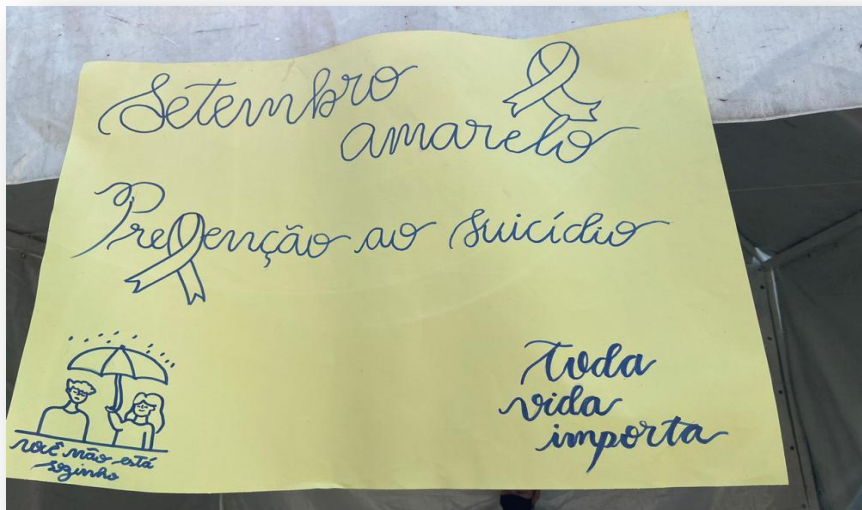 Setembro
amarelo
Prevenção ao suicídio
você não está
sozinho
toda
vida
importa